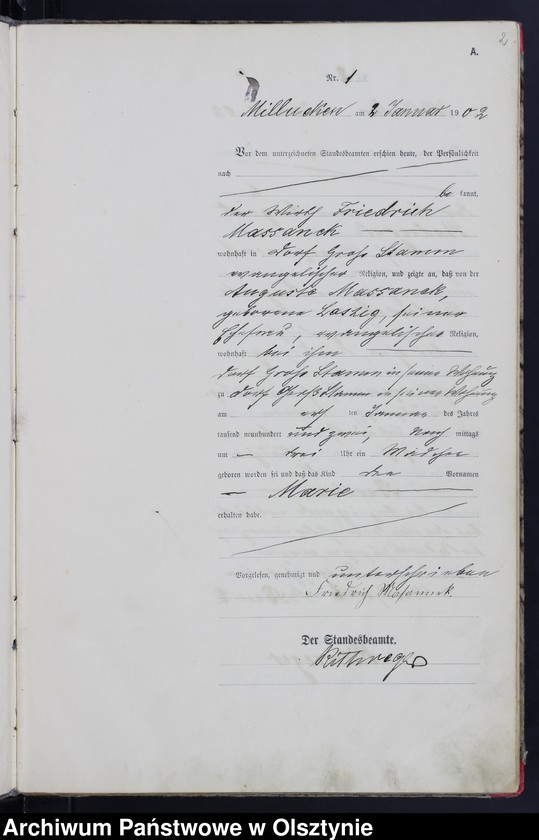 2
A.
Nr. 1
Millucken am 2 Januar 1902
Vor dem unterzeichneten Standesbeamten erschien heute, der Persönlichkeit
nach
be kannt,
der Wirth Friedrich
Massanek
wohnhaft in Dorf Groß Stamm
evangelischer Religion, und zeigte an, daß von der
Auguste Massanek,
geborene Laszig, seiner
Ehefrau, evangelischer Religion,
wohnhaft bei ihm
Dorf Groß Stamm in seiner Wohnung
zu Dorf Groß Stamm in seiner Wohnung
am ersten Januar des Jahres
tausend neunhundert und zwei, Nach mittags
um drei Uhr ein Mädchen
geboren worden sei und daß das Kind den Vornamen
Marie
erhalten habe.
Vorgelesen, genehmigt und unterschrieben
Friedrich Massanek.
Der Standesbeamte.
Archiwum Państwowe w Olsztynie